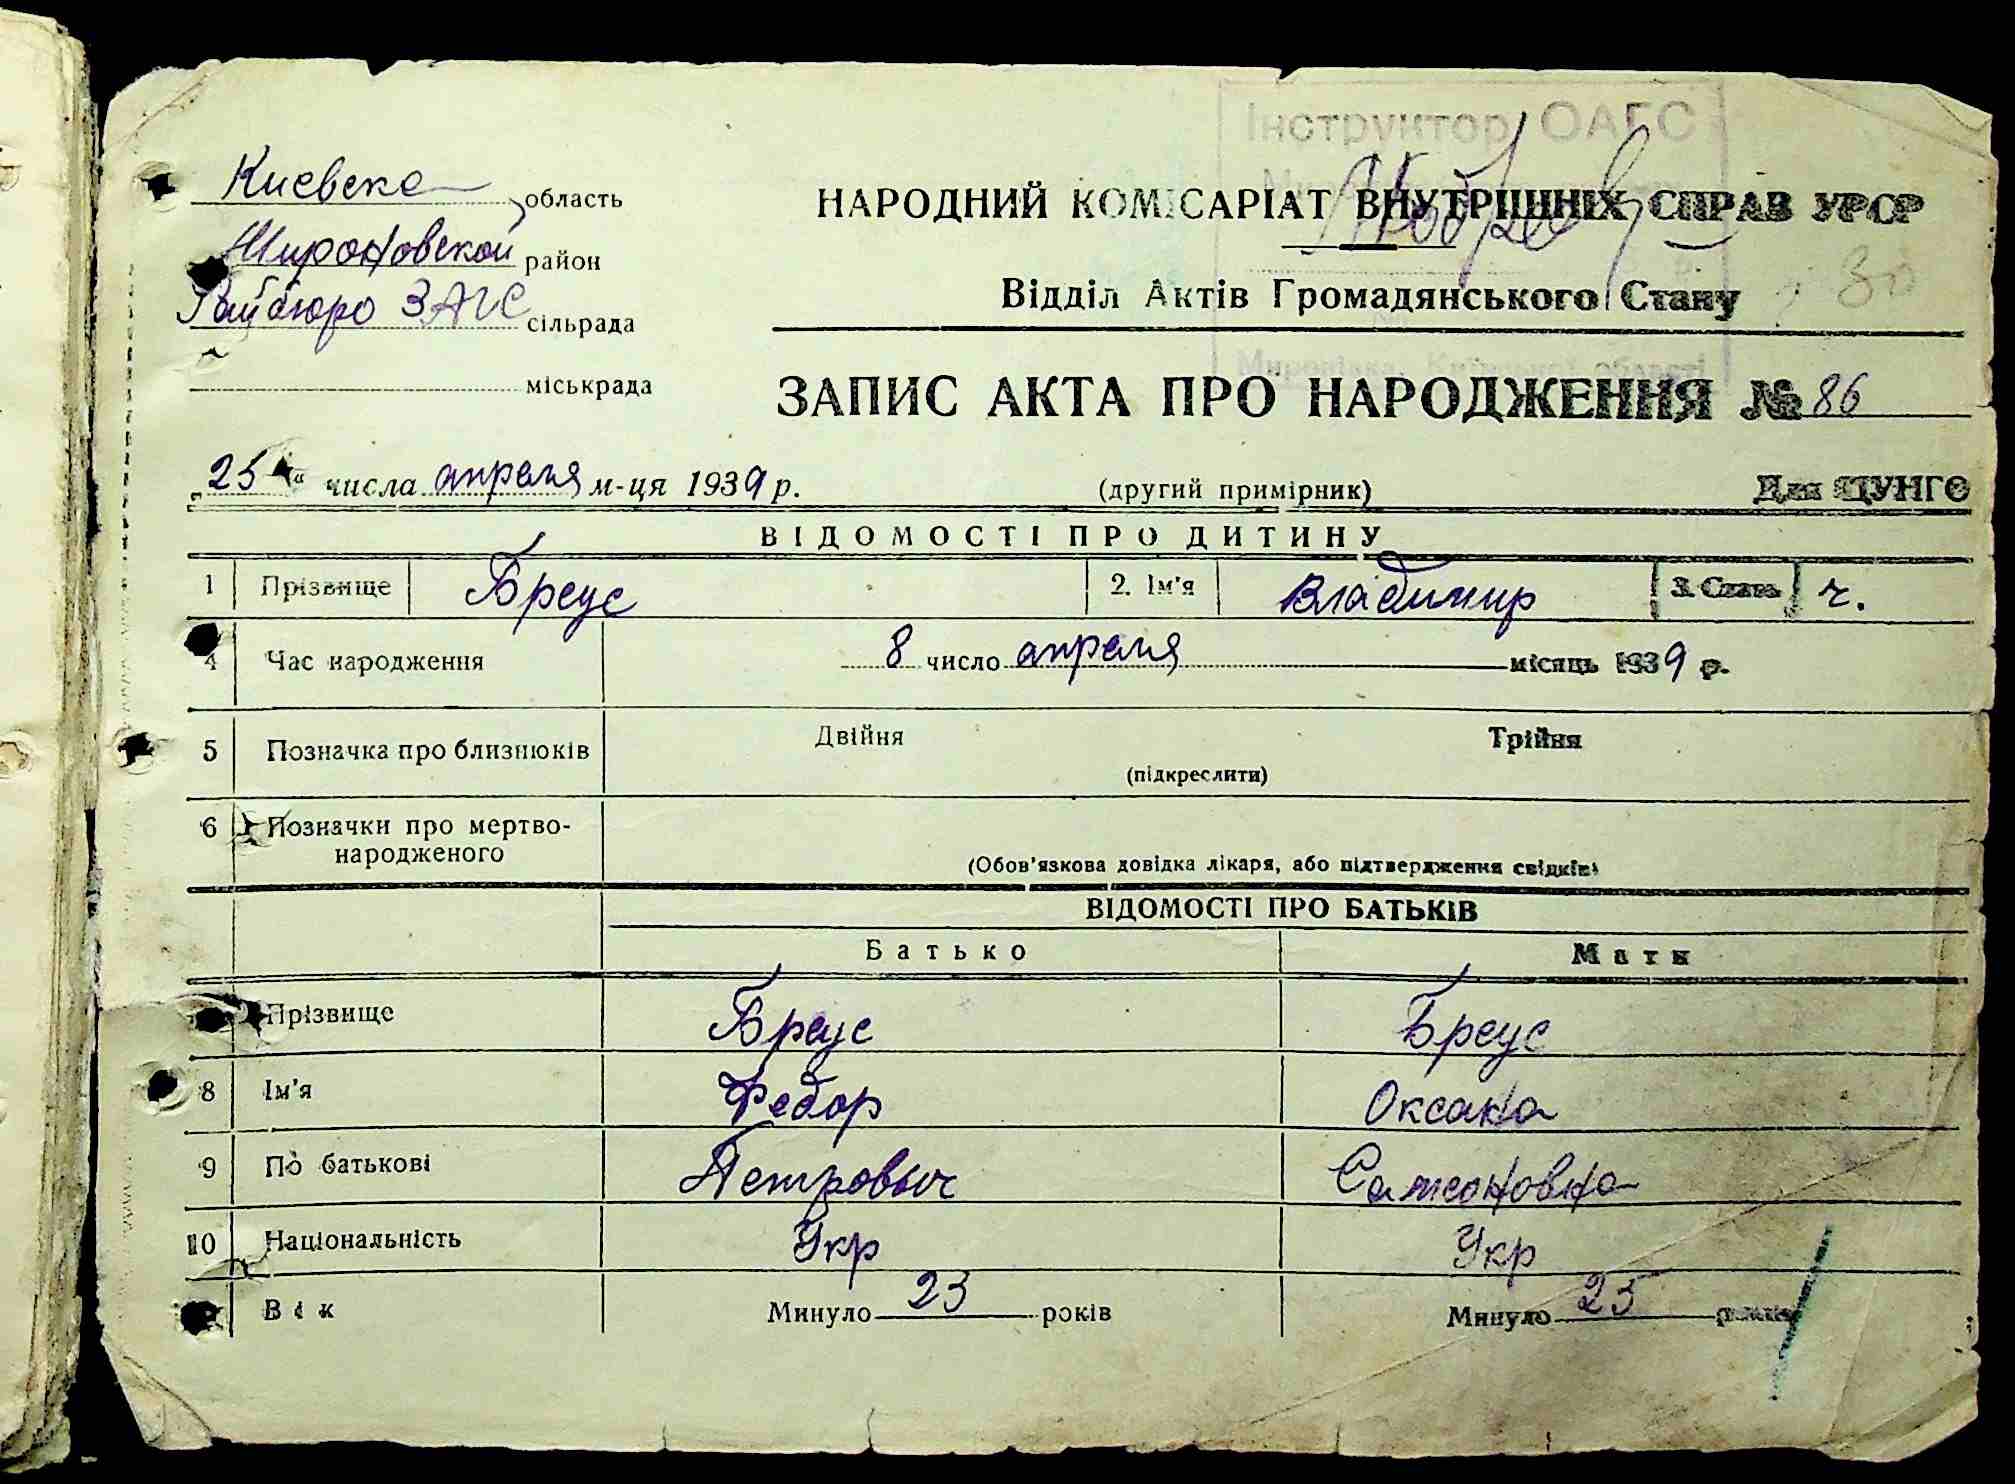 Інструктор ОАГС
Миронівка, Київської області
Киевска область
Мироновской район
Райбюро ЗАГС сільрада
міськрада
НАРОДНИЙ КОМІСАРІАТ ВНУТРІШНІХ СПРАВ УРСР
Відділ Актів Громадянського Стану
30
ЗАПИС АКТА ПРО НАРОДЖЕННЯ № 86
„25“ числа апреля м-ця 1939 р. (другий примірник) Для ЦУНГО
ВІДОМОСТІ ПРО ДИТИНУ
1 Прізвище Бреус 2. Ім'я Владимир 3. Стать ч.
4 Час народження 8 число апреля місяць 1939 р.
5 Позначка про близнюків Двійня Трійня
(підкреслити)
6 Позначки про мертво-
народженого
(Обов'язкова довідка лікаря, або підтвердження свідків)
ВІДОМОСТІ ПРО БАТЬКІВ
Батько Мати
Прізвище Бреус Бреус
8 Ім'я Федор Оксана
9 По батькові Петровыч Самсоновна
10 Національність Укр Укр
Вік Минуло 23 років Минуло 25 років